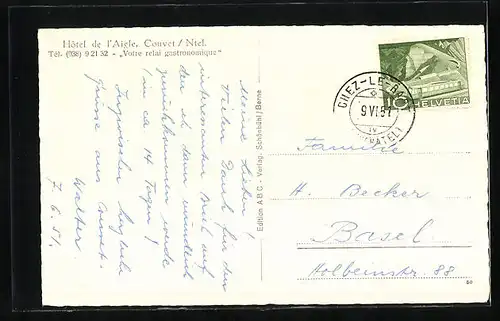 Hôtel de l'Aigle, Couvet / Ntel.
Tél. (038) 9 21 32 - „Votre relai gastronomique"
Meine Lieben!
Vielen Dank für den
interessanten Brief auf
den ich dann mündlich
zurückkommen werde
(in ca 14 Tagen)
Inzwischen herzliche
Grüsse aus Couvet.
Walter.
7.6.51.
Edition A B C - Verlag, Schönbühl / Berne
10 HELVETIA
CHEZ-LE-BART
9 VI 51
(NEUCHATEL)
Familie
H. Becker
Basel
Holbeinstr. 88